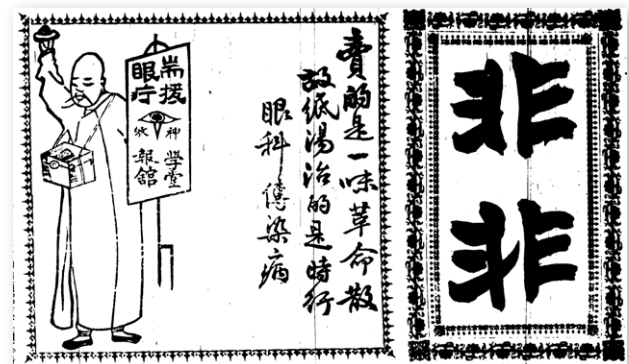 非非
賣的是一味革命散
故紙湯治的是時行
眼科傳染病
耑拔
眼疔
神
學堂
報館